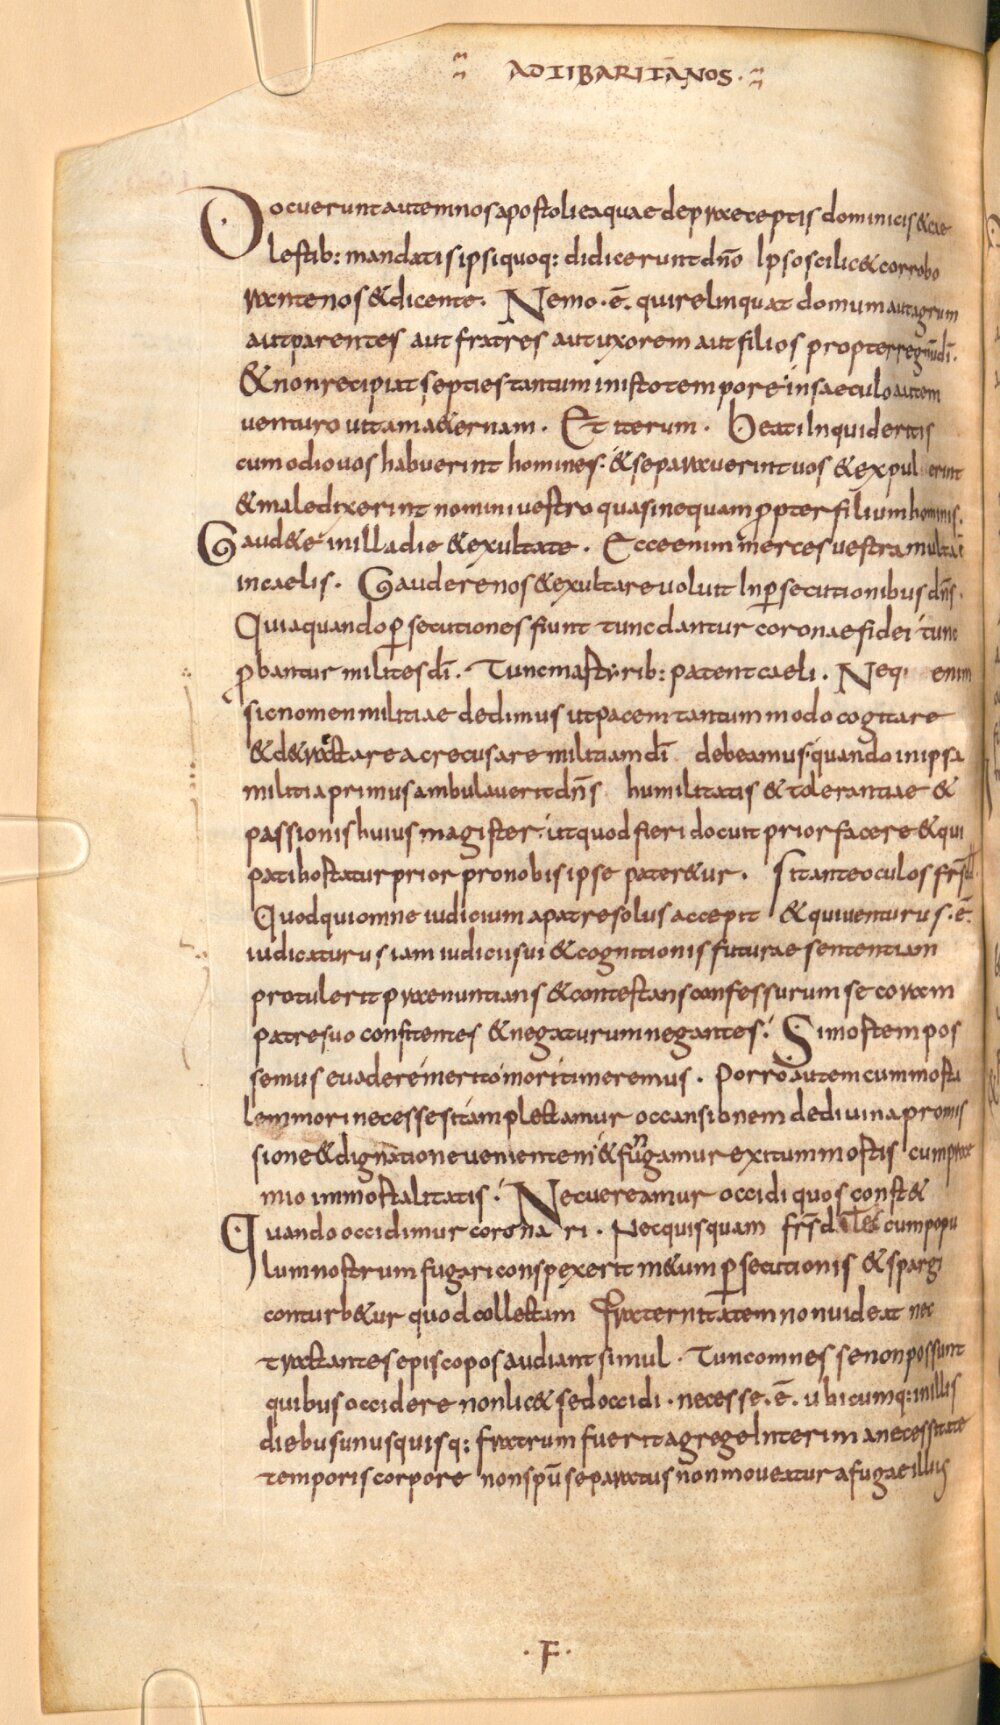 AD TIBARITANOS
Docuerunt autem nos apostoli ea quae de praeceptis dominicis & cae
lestib: mandatis ipsi quoq: didicerunt dño Ipso scilic& corrobo
rante nos & dicente. Nemo .ē. qui relinquat domum aut agrum
aut parentes aut fratres aut uxorem aut filios propter regnū dī.
& non recipiat septies tantum in isto tempore in saeculo autem
venturo vitam a&ernam. Et iterum. Beati Inquid eritis
cum odio vos habuerint homines. & separaverint vos & expul erint
& maledixerint nomini vestro quasi nequam propter filium hominis.
Gaud&e in illa die & exultate. Ecce enim merces vestra multa ē
in caelis. Gaudere nos & exultare voluit In persecutionibus dn̄s.
Quia quando persecutiones fiunt tunc dantur coronae fidei tunc
probantur milites dī. Tunc martyrib: patent caeli. Neq enim
sic nomen militiae dedimus ut pacem tantum modo cogitare
& d&ractare ac recusare militiam dī debeamus quando in ipsa
militia primus ambulaverit dn̄s humilitatis & tolerantiae &
passionis huius magister. ut quod fieri docuit prior facere & qui
pati hortatur prior pro nobis ipse pater&ur. Sit ante oculos frs̄
Quod qui omne iudicium a patre solus accepit & qui venturus .ē.
iudicaturus iam iudicii sui & cognitionis futurae sententiam
protulerit praenuntians & contestans confessurum se coram
patre suo confitentes & negaturum negantes. Si mortem pos
semus evadere merito mori timeremus. Porro autem cum morta
lem mori necesse sit amplectamur occansionem de divina promis
sione & dignatione venientem & fungamur exitum mortis cum prae
mio immortalitatis. Nec vereamur occidi quos const&
Quando occidimur coronari. Nec quisquam frs̄ d cum popu
lum nostrum fugari conspexerit m&um persecutionis & spargi
conturb&ur quod collectam Fraternitatem non videat nec
tractantes episcopos audiant simul. Tunc omnes se non possunt
quibus occidere non lic& sed occidi. necesse .ē. ubicumq: in illis
diebus unusquisq: fratrum fuerit a grege Interim a necessitate
temporis corpore non spū separatus non moveatur a fugae illius
. F .